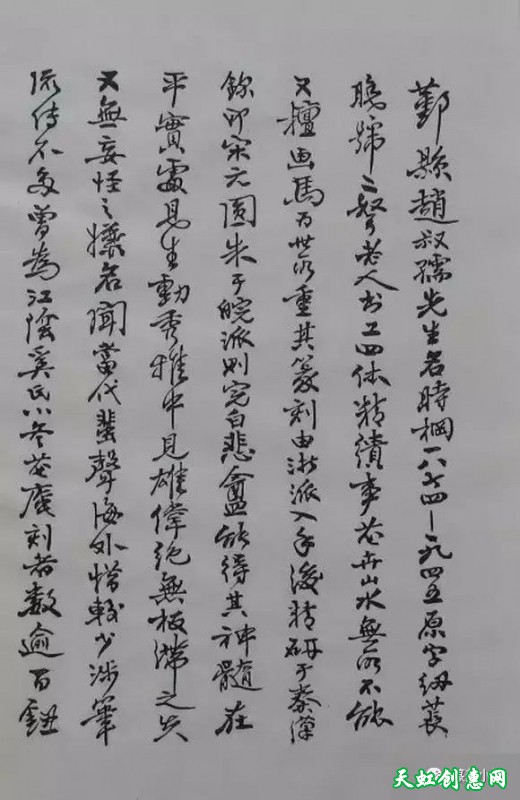 鄞縣趙叔孺先生名時棡一八七四—一九四五原字紉萇
晚號二弩老人書工四体精繢事花卉山水無所不能
又擅画馬为世所重其篆刻由浙派入手後精研于秦漢
鉥印宋元圆朱于皖派则完白悲盦能得其神髓在
平實處見生動秀雅中見雄偉絕無板滞之失
又無妄怪之嫌名聞當代蜚聲海外惜較少涉筆
流传不多曾為江陰奚氏小冬花庵刻者數逾百鈕
天虹创惠网